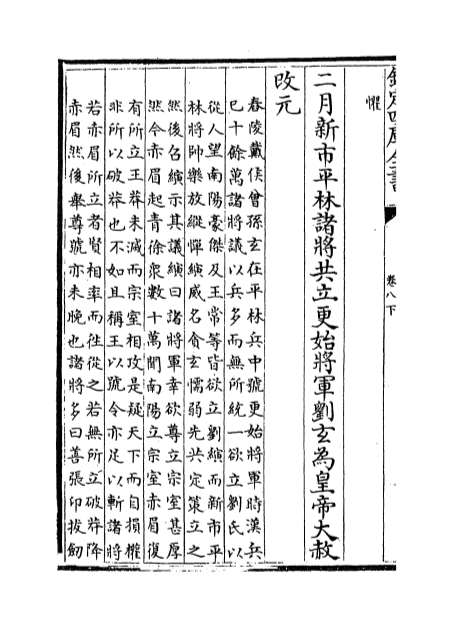 欽定四庫全書
卷八下
懼
二月新市平林諸將共立更始將軍劉玄為皇帝大赦
改元
舂陵戴侯曾孫玄在平林兵中號更始將軍時漢兵
已十餘萬諸將議以兵多而無所統一欲立劉氏以
從人望南陽豪傑及王常等皆欲立劉縯而新市平
林將帥樂放縱憚縯威名貪玄懦弱先共定策立之
然後召縯示其議縯曰諸將軍幸欲尊立宗室甚厚
然今赤眉起青徐衆數十萬聞南陽立宗室赤眉復
有所立王莽未滅而宗室相攻是疑天下而自損權
非所以破莽也不如且稱王以號令亦足以斬諸將
若赤眉所立者賢相率而往從之若無所立破莽降
赤眉然後舉尊號亦未晚也諸將多曰善張卬拔劒